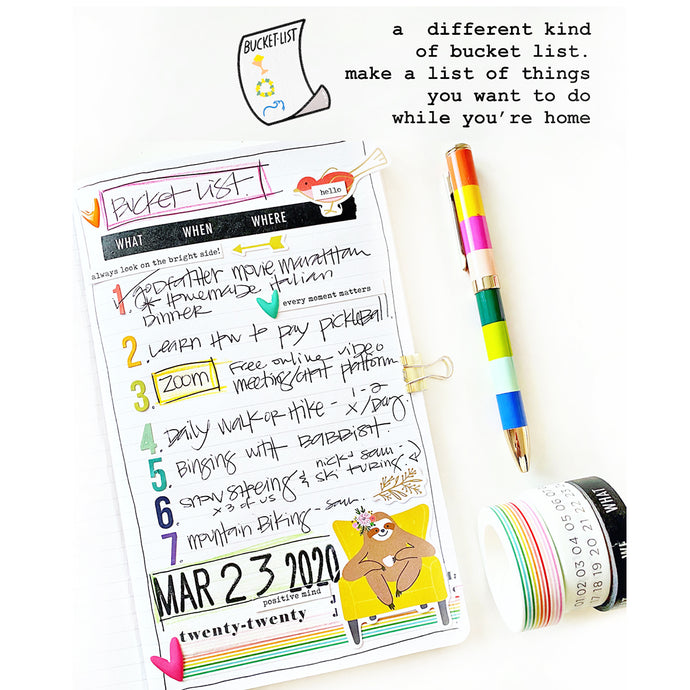 BUCKET-LIST
a different kind
of bucket list.
make a list of things
you want to do
while you're home
BUCKET LIST.
hello
WHAT WHEN WHERE
always look on the bright side!
1. GODFATHER MOVIE MARATHON
* HOMEMADE ITALIAN
DINNER
every moment matters
2. LEARN HOW TO PAY PICKLEBALL.
3. ZOOM FREE ONLINE VIDEO
MEETING/CHAT PLATFORM
4. DAILY WALK OR HIKE - 1-2
X/DAY.
5. BINGING WITH
6. SNOW &
NICK & SAM -
SKI TURING
X 3 OF US
7. MOUNTAIN BIKING - SAM.
MAR 23 2020
positive mind
twenty-twenty
01 02 03 04 05 06
17 18 19 20 21 22
WHAT